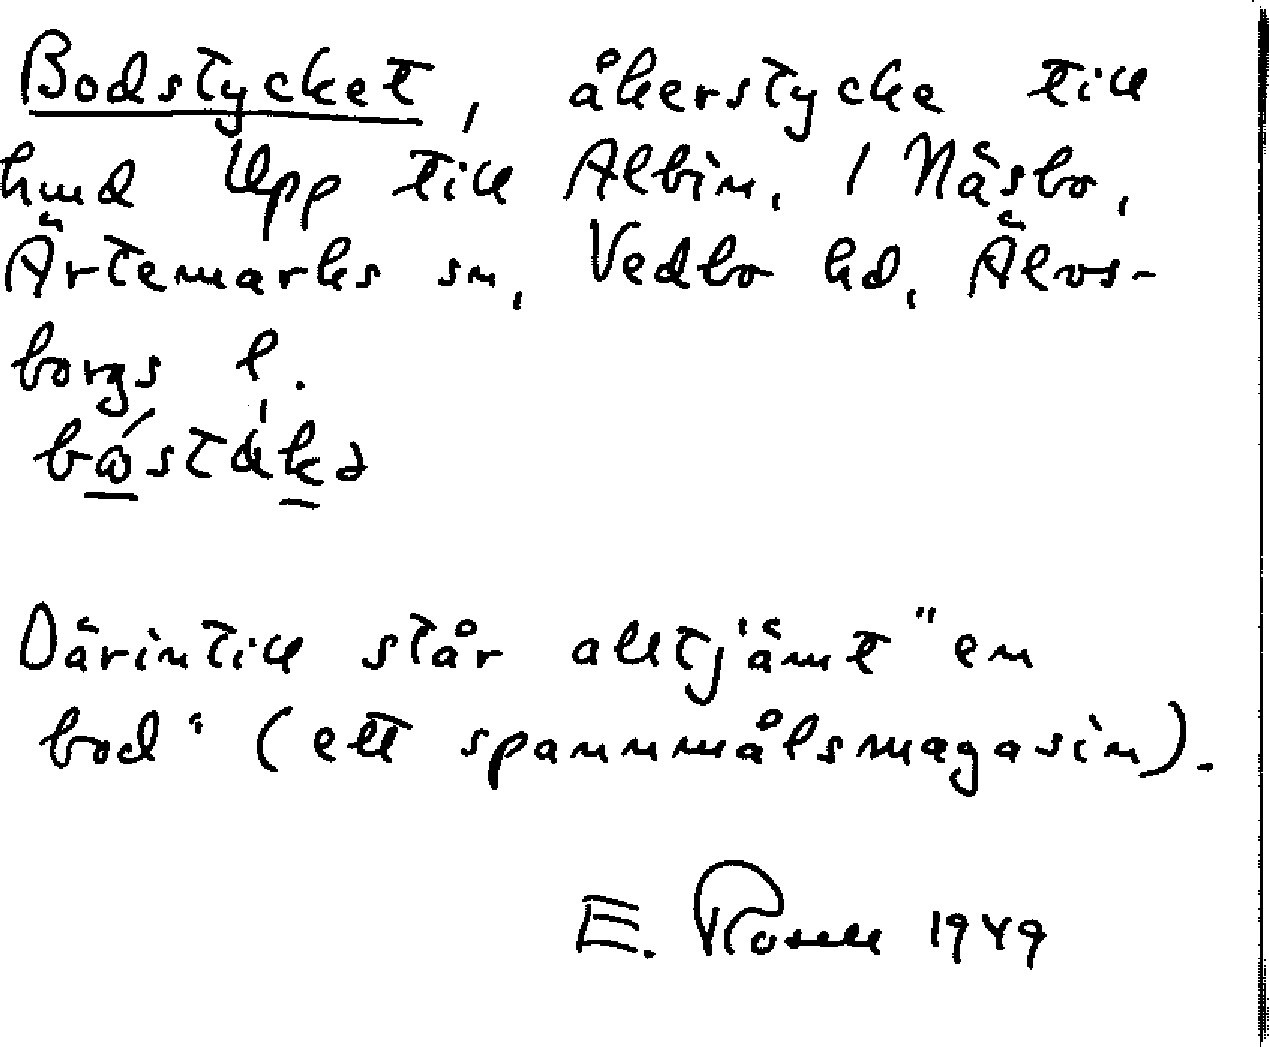 Bodstycket, åkerstycke till
hmd Upp till Albin, 1 Näsbo,
Ärtemarks sn, Vedbo hd, Älvs-
borgs l.
Därintill står alltjämt "en
bod" (ett spannmålsmagasin).
E. Rosell 1949